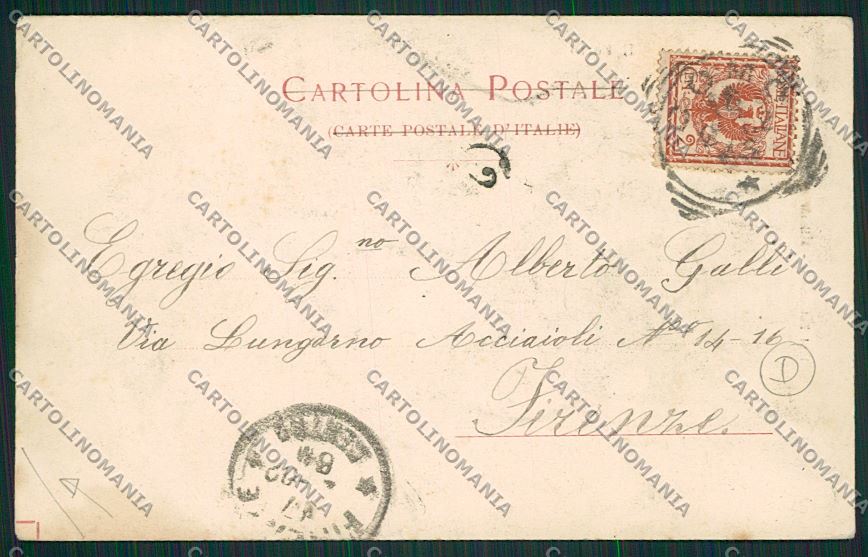 CARTOLINA POSTALE
(CARTE POSTALE D'ITALIE)
POSTE ITALIANE
Egregio Sig.no Alberto Galli
Via Lungarno Acciaioli No 14-16-
Firenze.
D
CARTOLINOMANIA